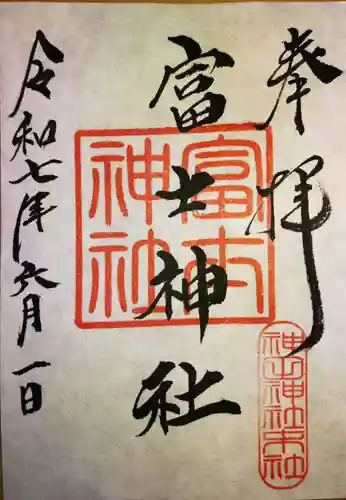 奉拝
富士神社
令和七年六月一日
富士神社
神山神社末社